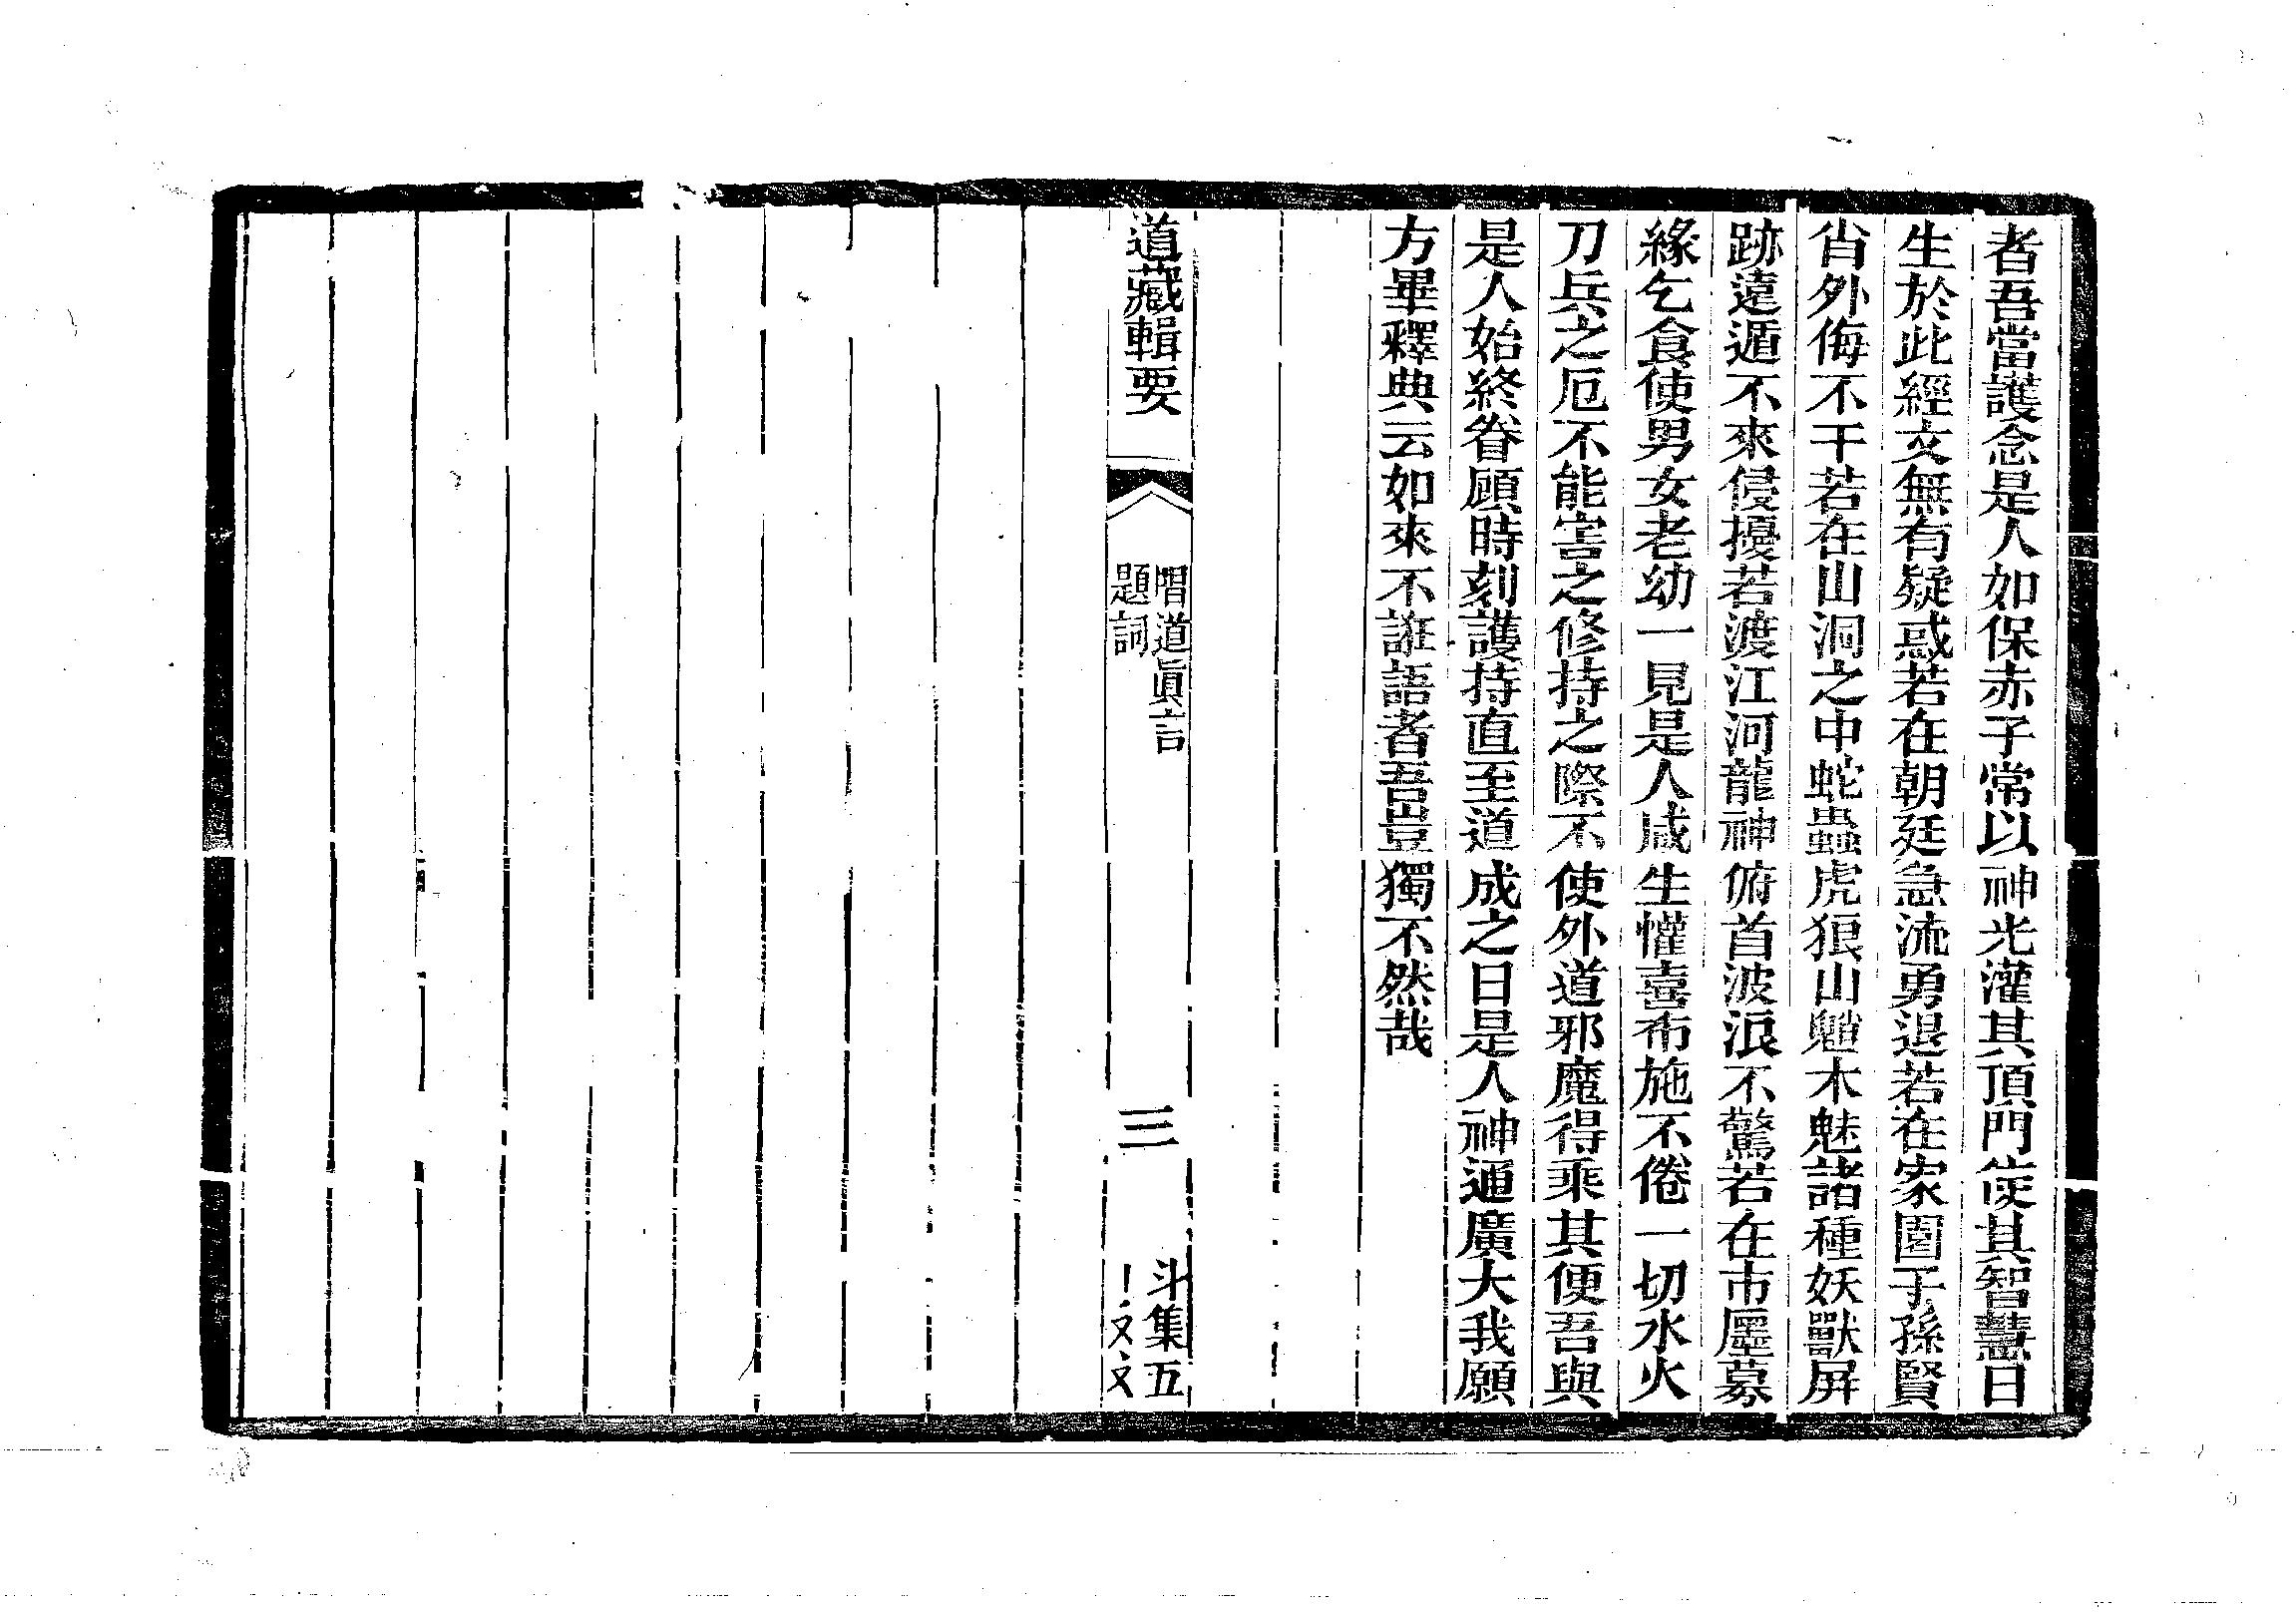 者吾當護念是人如保赤子常以神光灌其頂門使其智慧日
生於此經文無有疑惑若在朝廷急流勇退若在家園子孫賢
肖外侮不干若在山洞之中蛇蟲虎狼山魈木魅諸種妖獸屏
跡遠遁不來侵擾若渡江河龍神俯首波浪不驚若在市廛募
緣乞食使男女老幼一見是人咸生懽喜布施不倦一切水火
刀兵之厄不能害之修持之際不使外道邪魔得乘其便吾與
是人始終眷顧時刻護持直至道成之日是人神通廣大我願
方畢釋典云如來不誑語者吾豈獨不然哉
道藏輯要
道眞言
題詞
三
斗集五